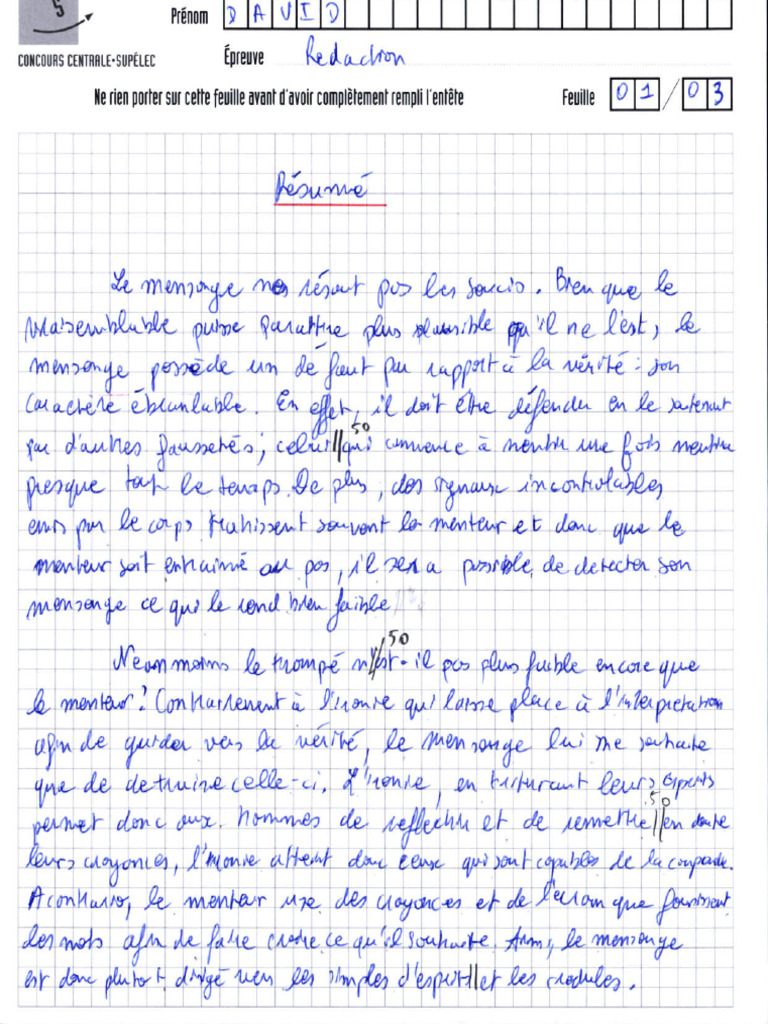 5
Prénom DAVID
CONCOURS CENTRALE•SUPÉLEC
Épreuve Redaction
Ne rien porter sur cette feuille avant d'avoir complètement rempli l'entête
Feuille 01/03
Résumé
Le mensonge ne résout pas les soucis. Bien que le
vraisemblable puisse paraître plus plausible qu'il ne l'est, le
mensonge possède un défaut par rapport à la vérité : son
caractère ébranlable. En effet, il doit être défendu en le soutenant
par d'autres faussetés ; celui || 50 qui commence à mentir une fois mentira
presque tout le temps. De plus, des signaux incontrolables
emis par le corps trahissent souvent le menteur et donc que le
menteur soit entrainé ou pas, il sera possible de detecter son
mensonge ce qui le rend bien faible
Neanmoins le trompé n'est // 50 -il pas plus faible encore que
le menteur ? Contrairement à l'ironie qui laisse place à l'interpretation
afin de guider vers la vérité, le mensonge lui ne souhaite
que de detruire celle-ci. L'ironie, en triturant leurs esprits
permet donc aux hommes de reflechir et de remettre || 50 en doute
leurs croyances, l'ironie atteint donc ceux qui sont capables de la
A contrario, le menteur use des croyances et de l'ecran que fournissent
les mots afin de faire croire ce qu'il souhaite. Ainsi, le mensonge
est donc plutot dirigé vers les simples d'esprit || et les credules.